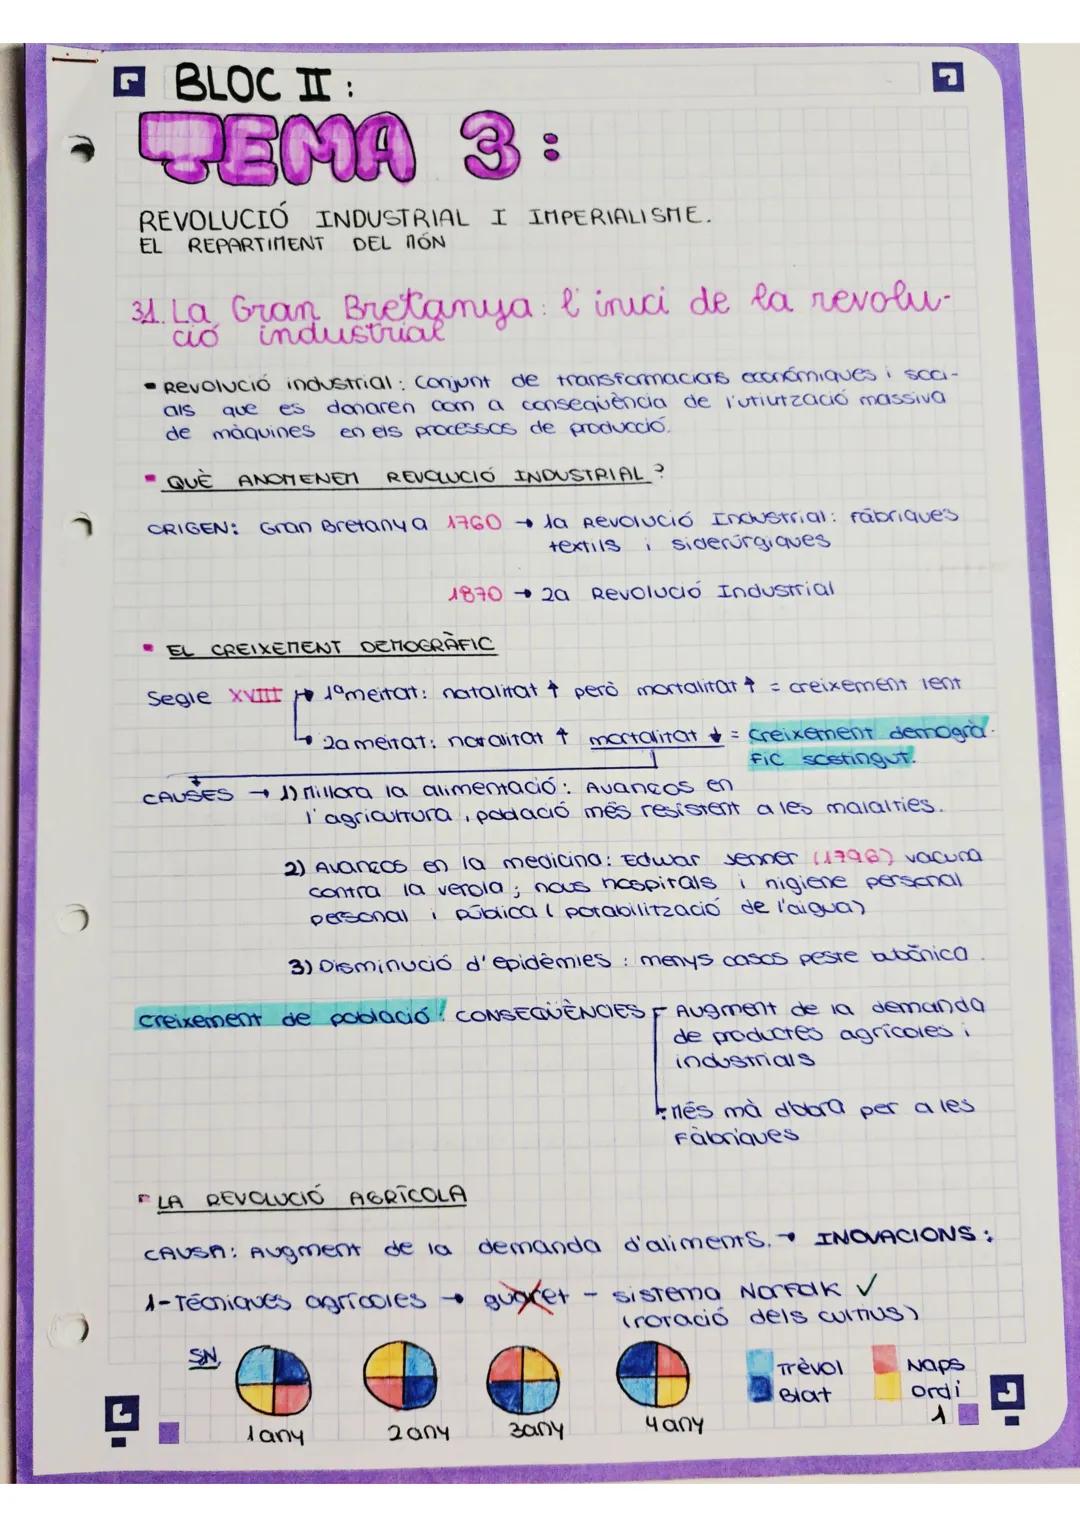 BLOC II:
TEMA 3:
REVOLUCIÓ INDUSTRIAL I IMPERIALISME.
EL REPARTIMENT DEL MÓN
31. La Gran Bretanya: l'inici de la revolu-
ció industrial
- Revolució industrial: Conjunt de transformacions econòmiques i soci-
als que es donaren com a conseqüència de l'utilització massiva
de màquines en els processos de producció.
QUÈ ANOMENEM REVOLUCIÓ INDUSTRIAL?
ORIGEN: Gran Bretanya 1760 → 1a Revolució Industrial: fàbriques
textils i siderúrgiques
1870 → 2a Revolució Industrial
EL CREIXEMENT DEMOGRÀFIC
Segle XVIII → 1ª meitat: natalitat ↑ però mortalitat ↑ = creixement lent
→ 2a meitat: natalitat ↑ mortalitat ↓ = creixement demogrà-
fic sostingut.
CAUSES → 1) Millora la alimentació: Avanços en
l'agricultura, població més resistent a les malalties.
2) Avanços en la medicina: Edwar Jenner (1796) vacuna
contra la verola; nous hospitals i higiene personal
personal i pública (potabilització de l'aigua)
3) Disminució d'epidèmies: menys casos peste bubònica.
creixement de població: CONSEQÜÈNCIES Augment de la demanda
de productes agrícoles i
industrials
Més mà d'obra per a les
Fàbriques
LA REVOLUCIÓ AGRÍCOLA
CAUSA: Augment de la demanda d'aliments. → INOVACIONS:
1-Tècniques agrícoles → guaret - sistema Norfolk ✓
(rotació dels cultius)
SN
Trèvol Naps
Blat Ordi
1 any 2 any 3 any 4 any
1